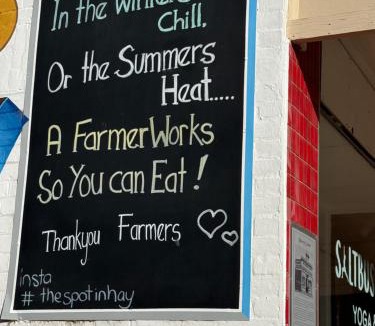 In the Winters
Chill.
Or the Summers
Heat.....
A FarmerWorks
So You can Eat!
Thankyou Farmers
insta
# thespotinhay
SALTBUS
YOGA